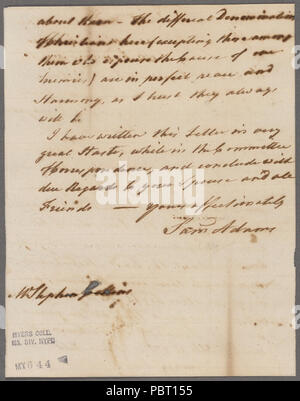 about them - The different Denominations
of Christians here (excepting those among
them who espouse the cause of our
Enemies) are in perfect peace and
Harmony, as I trust they always
will be
I have written this Letter in very
great Haste, while in the Committee
of Correspondence, and conclude with
due Regards to your Spouse and all
Friends — Yours affectionately
Sam Adams
Mr Stephen Collins
MYERS COLL.
MS. DIV. NYPL
MY 6 44
alamy
PBT155